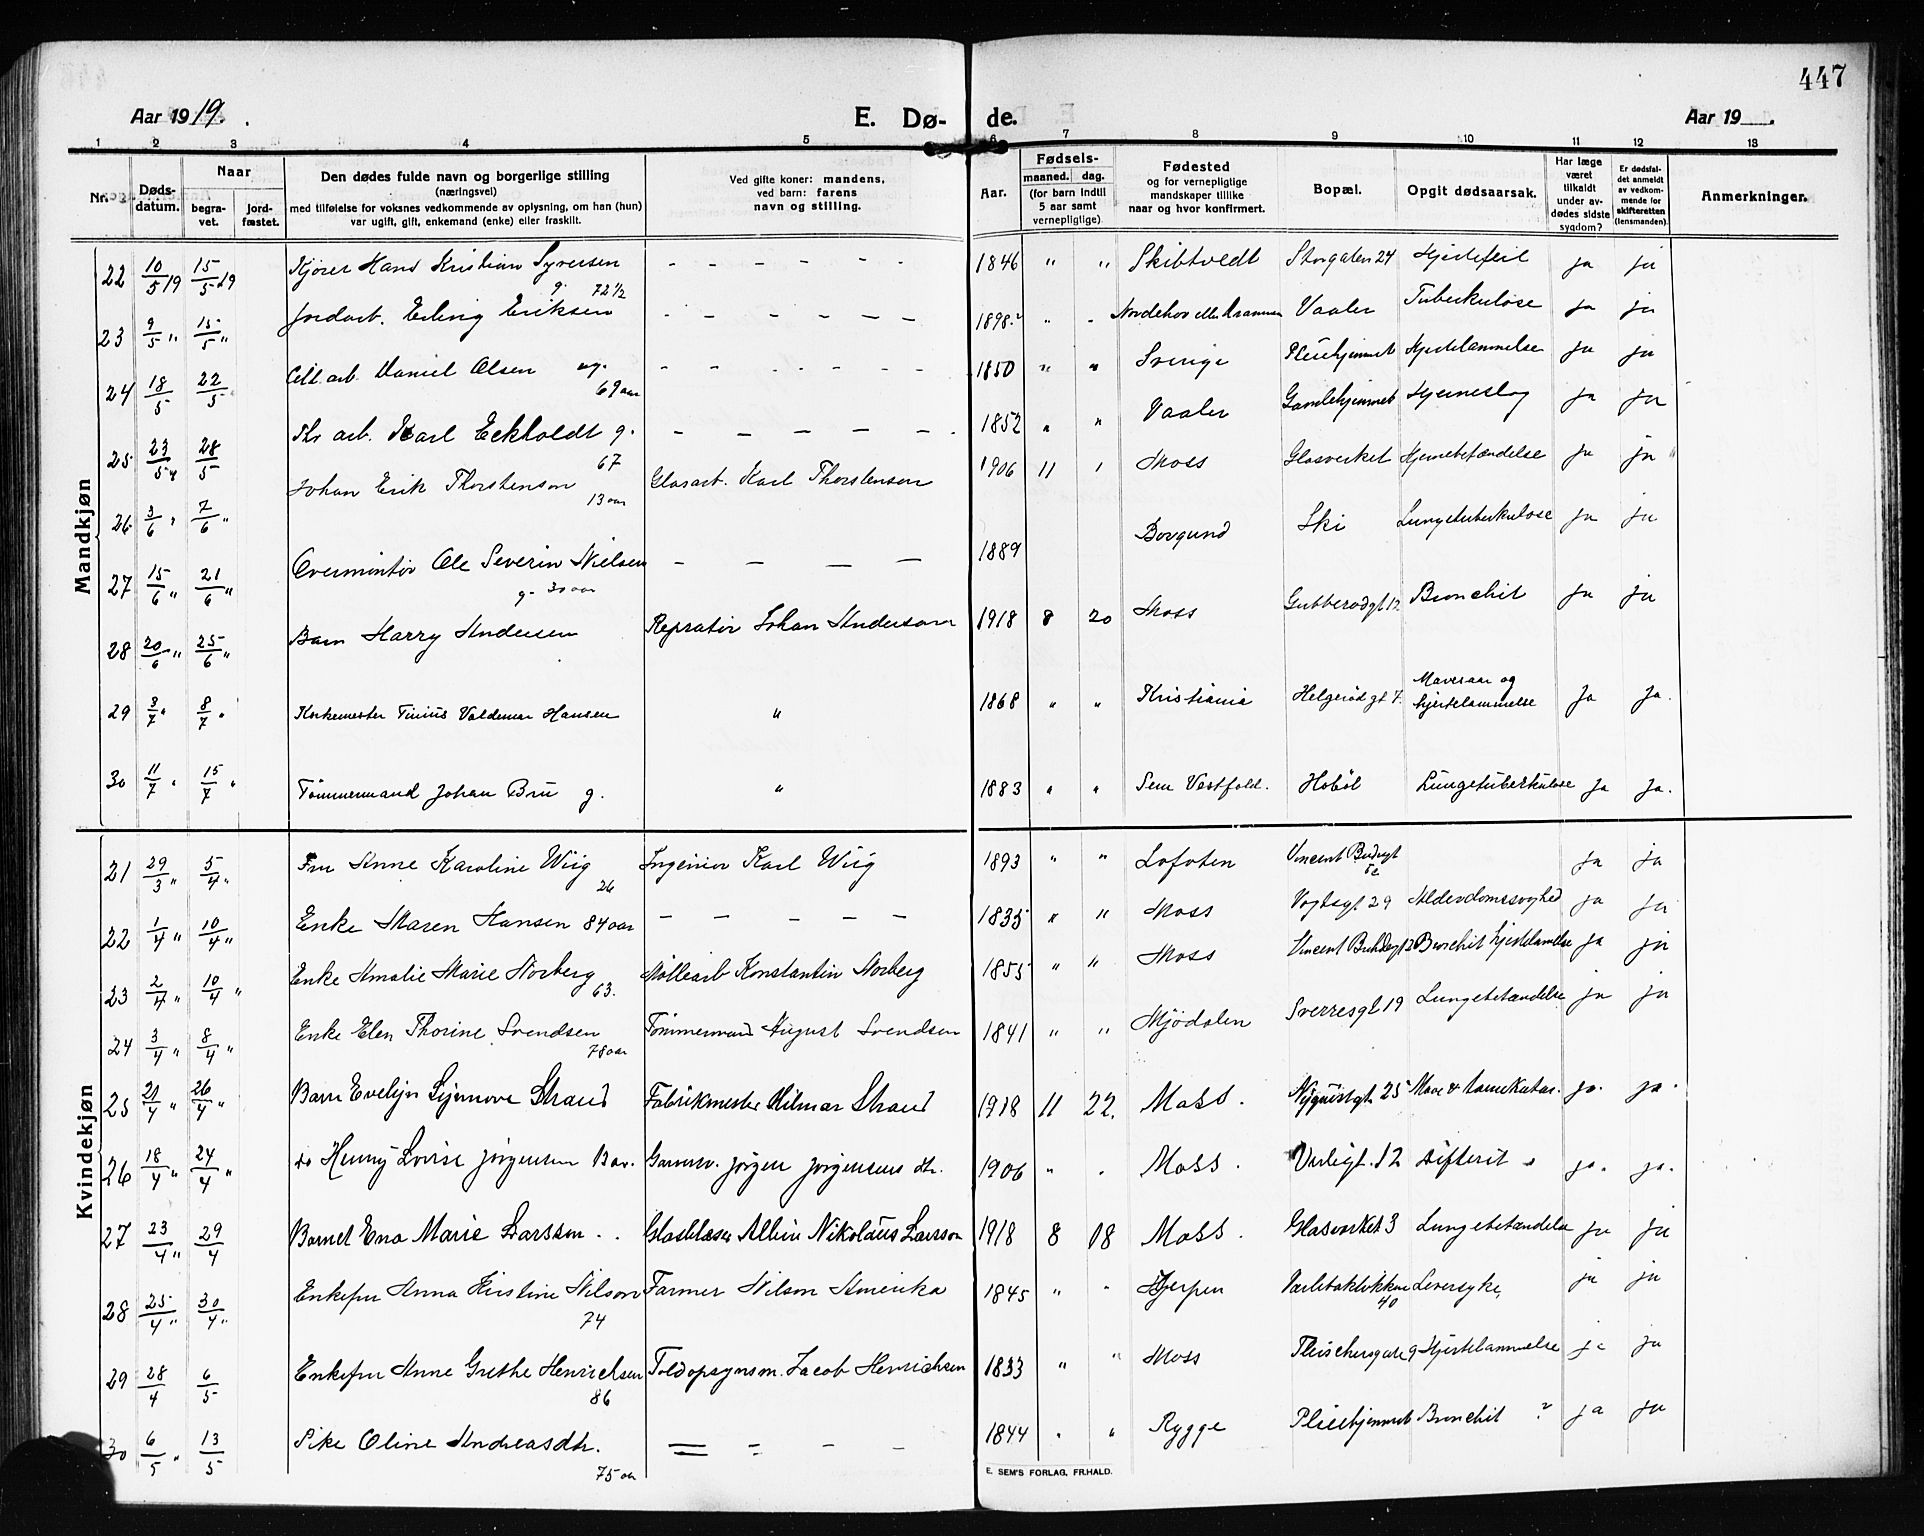 447
Aar 1919.
E. Dø- de.
Aar 19
1 2 3 4 5 6 7 8 9 10 11 12 13
Nr.
Døds-datum.
Naar
begra-vet.
jord-fæstet.
Den dødes fulde navn og borgerlige stilling
(næringsvei)
med tilføielse for voksnes vedkommende av oplysning, om han (hun)
var ugift, gift, enkemand (enke) eller fraskilt.
Ved gifte koner: mandens,
ved barn: farens
navn og stilling.
Aar.
Fødsels-
maaned. dag.
(for barn indtil
5 aar samt
vernepligtige)
Fødested
og for vernepligtige
mandskaper tillike
naar og hvor konfirmert.
Bopæl.
Opgit dødsaarsak.
Har læge
været
tilkaldt
under av-
dødes sidste
sygdom?
Er dødsfal-
det anmeldt
av vedkom-
mende for
skifteretten
(lensmanden).
Anmerkninger.
Mandkjøn
22 10/5 19 15/5 19 Kjører Hans Kristian Syversen g. 72 1/2 – – – – – – 1846 " " Skibtvedt Storgaten 24 Hjertefeil ja ja
23 9/5 " 15/5 " Jordarb. Erling Eriksen – – – – – – 1898 Vaaler Tuberkulose ja ja
24 18/5 22/5 arb. Daniel Olsen ug. 69 aar – – – – – – 1850 " " Sverige Pleiehjemmet Hjertelammelse ja ja
25 23/5 " 28/5 arb. Karl Eckholdt g. 67 – – – – – 1852 " " Vaaler Gamlehjemmet Hjerneslag ja ja
26 3/6 " 7/6 " Johan Erik Thorstenson 13 aar Glasarb. Karl Thorstenson 1906 11 1 Moss Glasverket Hjernebetændelse ja ja
27 15/6 " 21/6 " Overmontør Ole Severin Nielsen g. 30 aar – – – – 1889 Borgund Ski Lungetuberkulose ja ja
28 20/6 " 25/6 " Barn Harry Andersen Repratør Johan Anderson 1918 8 20 Moss Gubberødgt 12 Bronchit ja ja
29 3/7 " 8/7 " Korkemester Tinius Valdemar Hansen " 1868 " " Kristiania Helgerødgt 7. Mavesaar og hjertelammelse Ja Ja.
30 11/7 " 15/7 " Tømmermand Johan Bru g. " 1883 " " Sem Vestfold. Hobøl Lungetuberkulose Ja Ja.
Kvindekjøn
21 29/3 " 5/4 " Fru Anne Karoline Wiig 26 Ingeniør Karl Wiig 1893 " " Lofoten Vincent Budgt ja ja
22 1/4 " 10/4 " Enke Maren Hansen 84 aar – – – – 1835 " " Moss Vogtsgt 29 Alderdomssvaghed ja ja
23 2/4 " 10/4 " Enke Amalie Marie Norberg 63. Møllearb Konstantin Norberg 1855 " " Moss Vincent Buddegt 2 Bronchit hjertelamelse ja ja
24 3/4 " 8/4 " Enke Elen Thorine Svendsen 78 aar Tømmermand August Svendsen 1841 " " Mjødalen Sverresgt 19 Lungebetændelse ja ja
25 21/4 " 26/4 " Barn Evelyn Synnøve Strand Fabrikmester Hilmar Strand 1918 11 22. Moss. Nyquistgt. 25 Mave & tarmkatar. ja. ja.
26 18/4 " 24/4 " do Henny Lovise Jørgensen Bar. Garverv. Jørgen Jørgensens dtr. 1906 " . Moss. Varligt. 12 Difterit ja. ja.
27 23/4 " 29/4 Barnet Ena Marie Larssen Glasblæser Albin Nikolaus Larsson 1918 8 18 Moss. Glasverket 3 Lungebetændelse ja ja
28 25/4 " 30/4 " Enkefru Anna Kirstine Nilson 74 Farmer Nilson Amerika 1845 " " Gjerpen Varlebakløkken 40 Leversyke, ja ja
29 28/4 6/5 Enkefru Anne Grethe Henrichsen 86 Toldopsynsm. Jacob Henrichsen 1833 " " Moss Fleischersgate 9 Hjertelammelse ja ja
30 6/5 " 13/5 Pike Oline Andreasdtr. 75 aar = – – – 1844 " " Rygge Pleiehjemmet Bronchit ? ja ja
E. SEM'S FORLAG, FR.HALD.